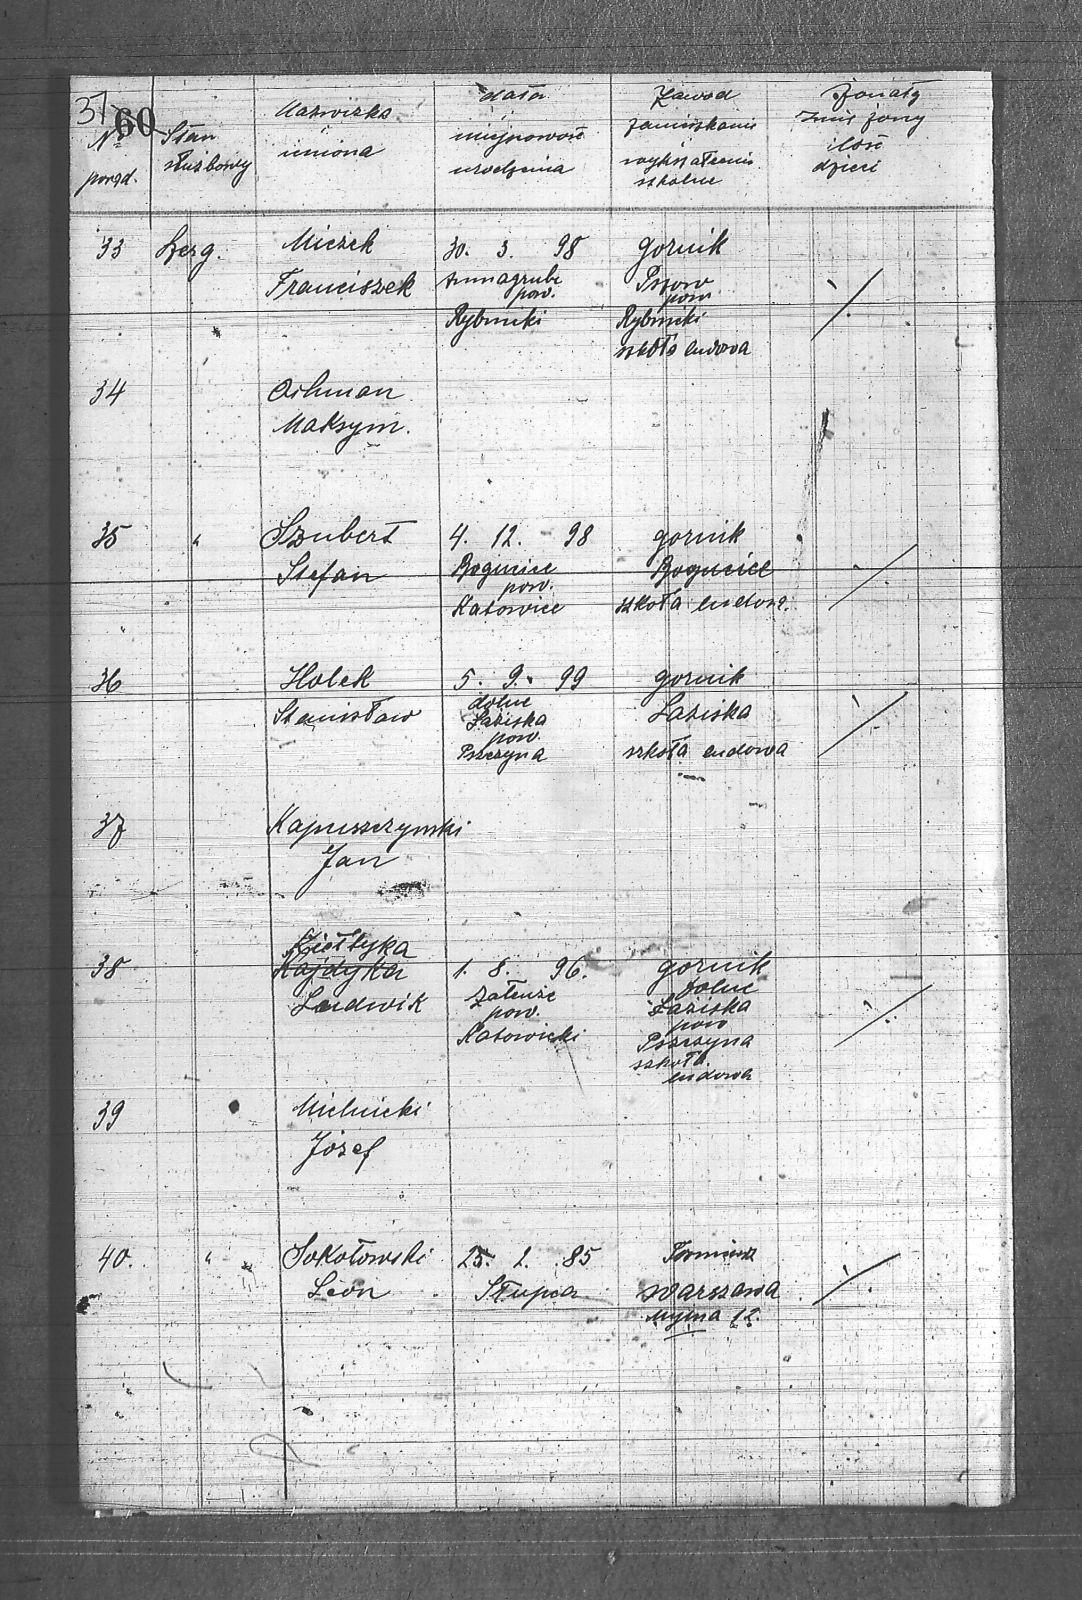 37
60
№ porząd.
Stan służbowy
Nazwisko imiona
data miejscowość urodzenia
Zawod zamieszkanie wykształcenie szkolne
Żonaty Imię żony ilość dzieci
33 Szerg. Miczek 30. 3. 98 gornik
Franciszek Annagrube Pszow
pow. pow
Rybnicki Rybnicki
szkoła ludowa
34
Maksym.
35 " Szubert 4. 12. 98 gornik
Stefan Bogucice Bogucice
pow.
Katowice szkoła ludowa.
36 Holek 5. 9. 99 gornik
dolne
Stanisław Łaziska Łaziska
pow.
Pszczyna szkoła ludowa
37 Kapuszczynski
Jan
Kiełtyka
38 Kajdyka 1. 8. 96. gornik
dolne
Ludwik Załenże Łaziska
pow. pow
Katowicki Pszczyna
szkoła
ludowa
39 Mielnicki
Józef
40. " Sokołowski 25. 2. 85
Leon Słupia Warszawa
12.